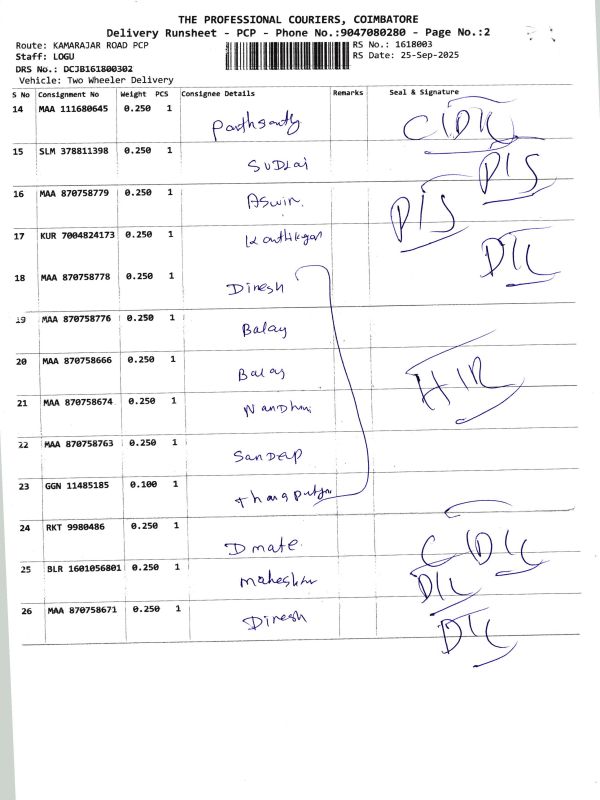 THE PROFESSIONAL COURIERS, COIMBATORE
Delivery Runsheet - PCP - Phone No.:9047080280 - Page No.:2
Route: KAMARAJAR ROAD PCP RS No.: 1618003
Staff: LOGU RS Date: 25-Sep-2025
DRS No.: DCJB161800302
Vehicle: Two Wheeler Delivery
S No Consignment No Weight PCS Consignee Details Remarks Seal & Signature
14 MAA 111680645 0.250 1
15 SLM 378811398 0.250 1 SUDLAI PIS
16 MAA 870758779 0.250 1 Aswin. PIS
17 KUR 7004824173 0.250 1 DIL
18 MAA 870758778 0.250 1 Dinesh
19 MAA 870758776 0.250 1 Balay
20 MAA 870758666 0.250 1 Balay HIR
21 MAA 870758674 0.250 1 Nandhini
22 MAA 870758763 0.250 1 Sandeep
23 GGN 11485185 0.100 1
24 RKT 9980486 0.250 1 Dmate. C
25 BLR 1601056801 0.250 1 DIL
26 MAA 870758671 0.250 1 Dinesh DIL